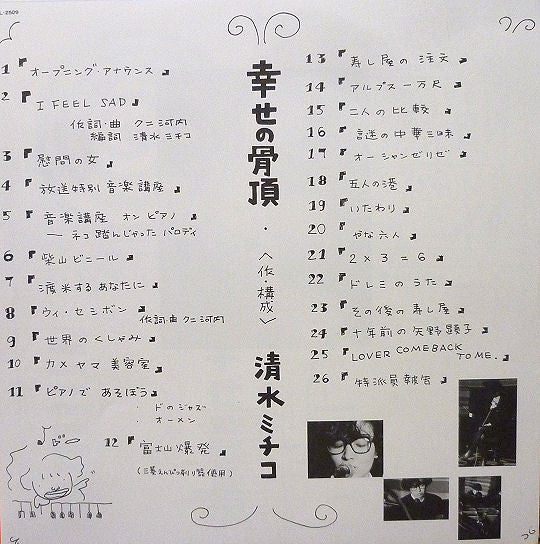 L-2509
1『オープニング・アナウンス』
2『I FEEL SAD』
作詞・曲 クニ河内
編詞 清水ミチコ
3『慰問の女』
4『放送特別音楽講座』
5『音楽講座 オンピアノ』
— ネコ踏んじゃった パロディ
6『柴山ビニール』
7『渡米するあなたに』
8『ウィ・セシボン』
作詞・曲 クニ河内
9『世界のくしゃみ』
10『カメヤマ美容室』
11『ピアノで あそぼう』
・ドのジャズ
・オーメン
12『富士山爆発』
幸せの骨頂
・〈作・構成〉
清水ミチコ
13『寿し屋の注文』
14『アルプス一万尺』
15『二人の比較』
16『謎の中華三昧』
17『オーシャンゼリゼ』
18『五人の港』
19『いたわり』
20『やな六人』
21『2×3=6』
22『ドレミのうた』
23『その後の寿し屋』
24『十年前の矢野顕子』
25『LOVER COME BACK
TO ME.』
26『特派員報告』